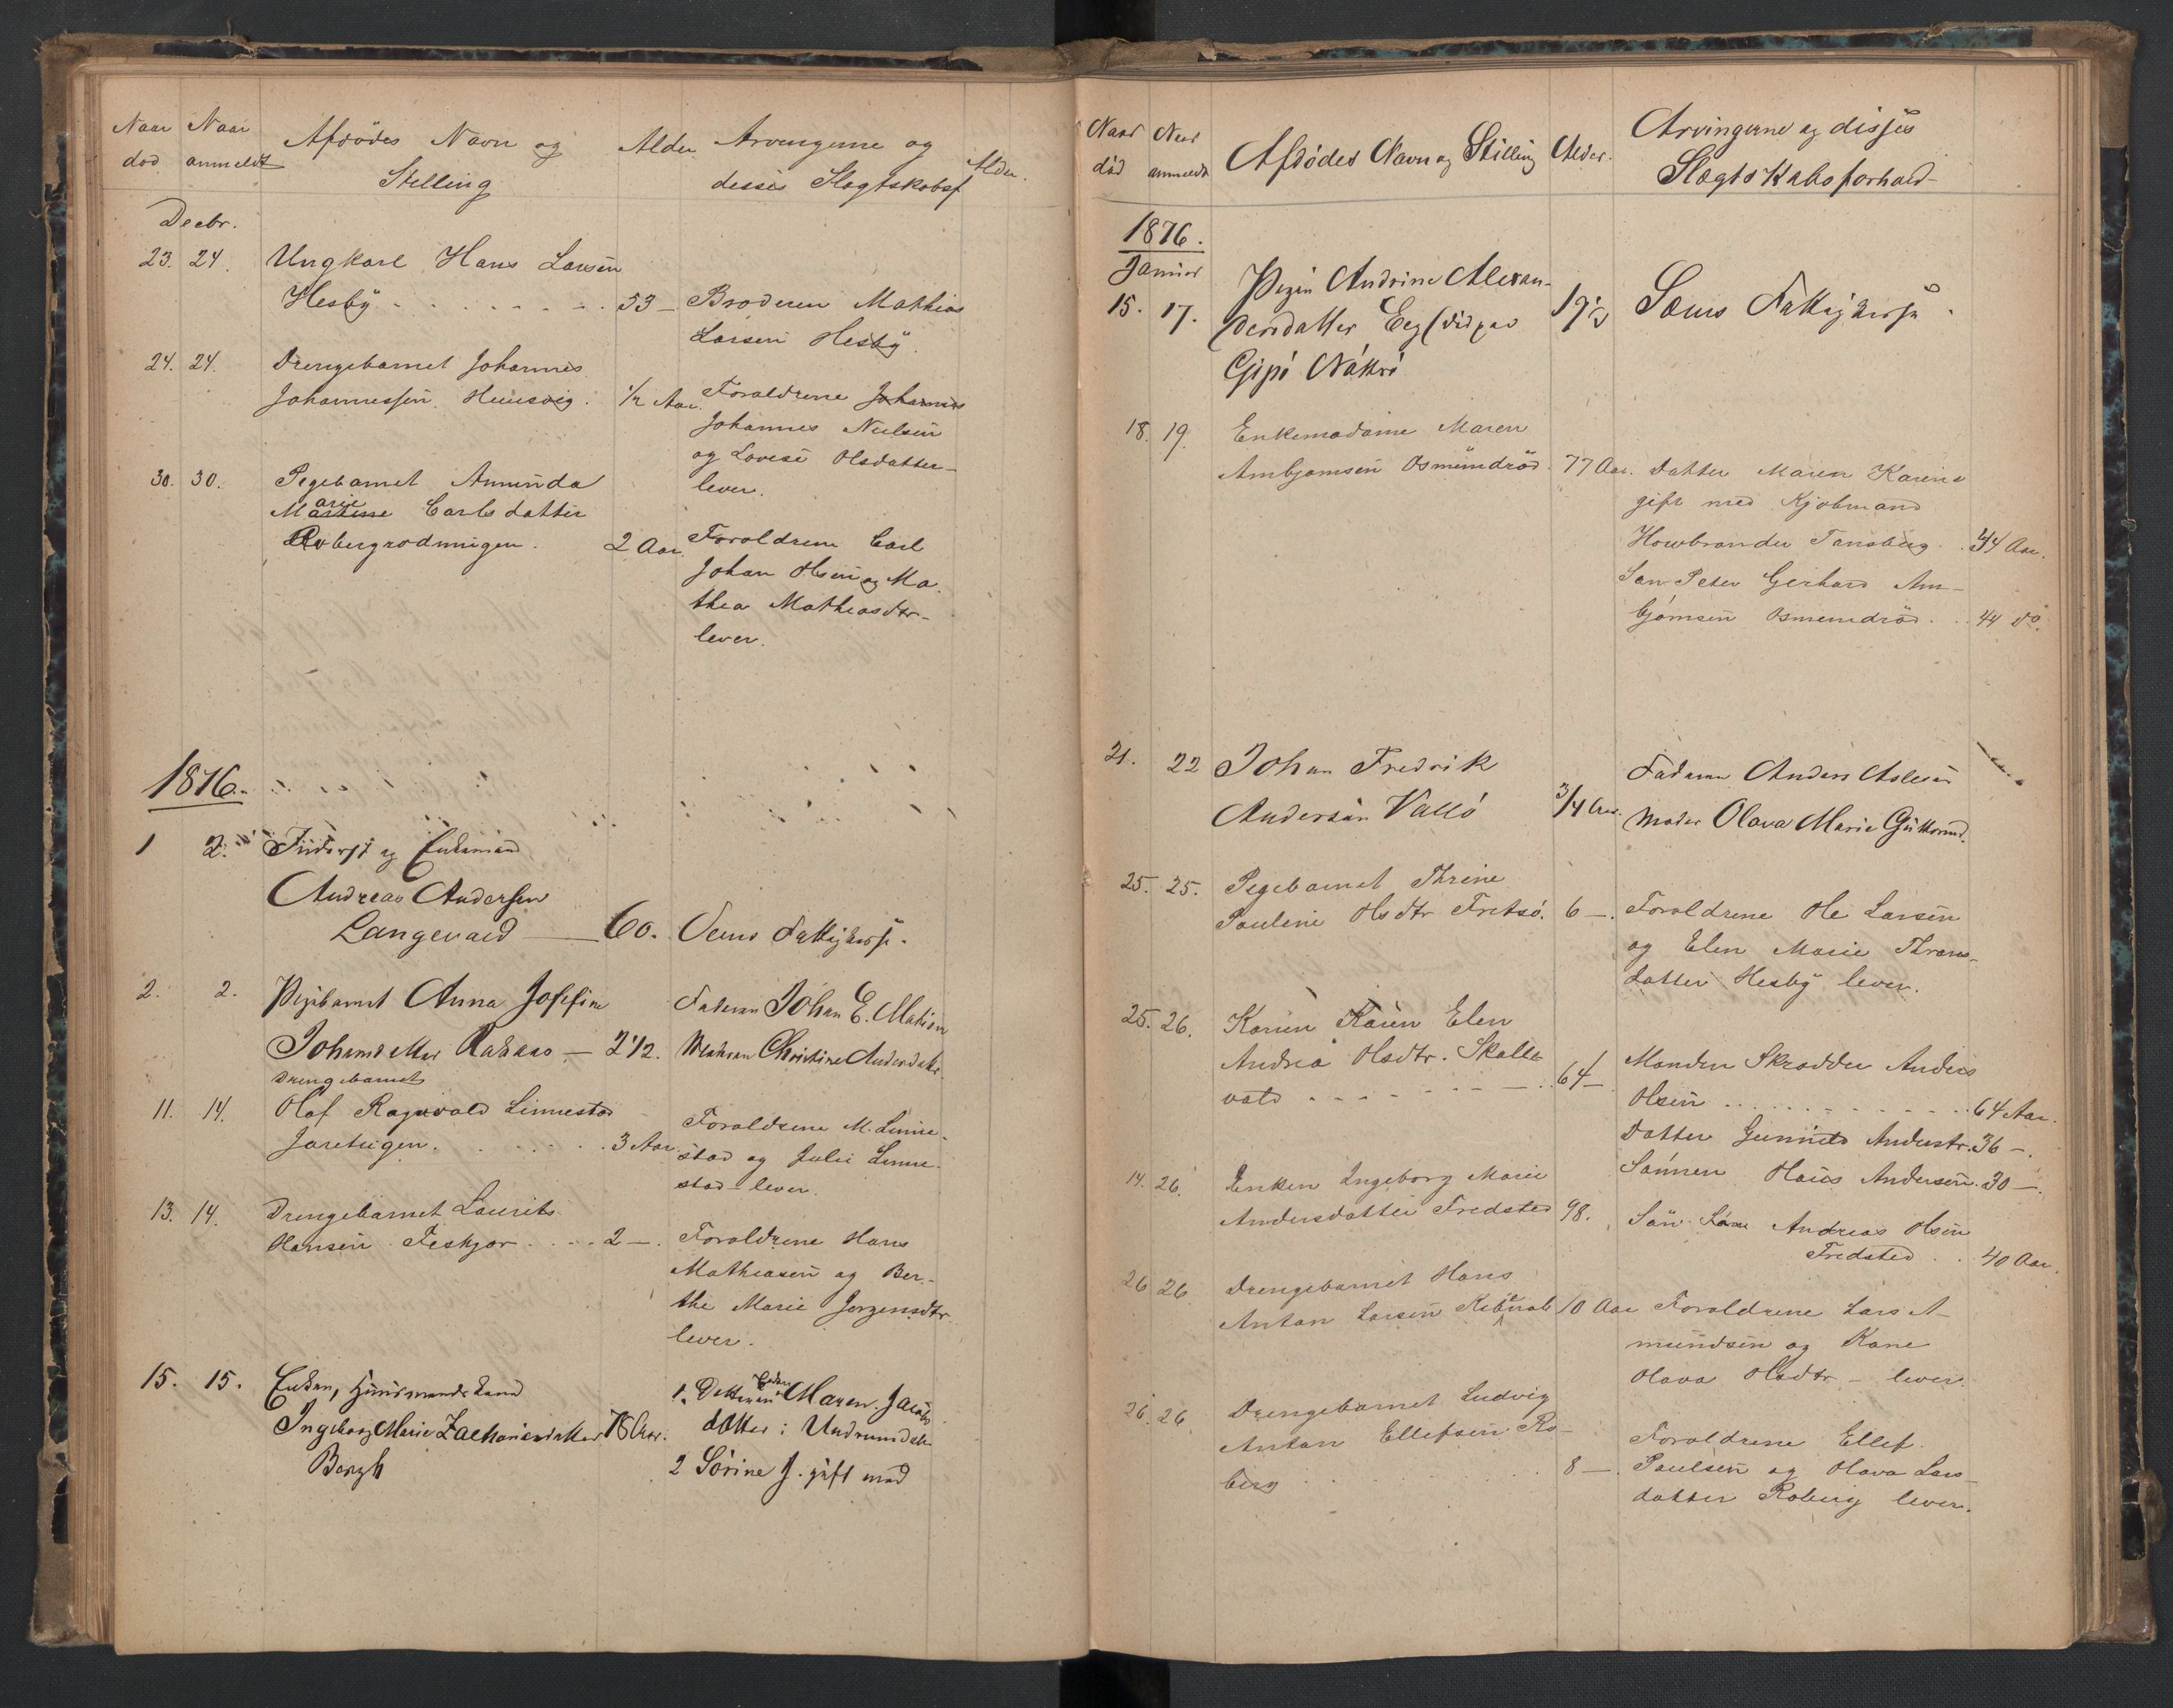 Naar Naar Afdödes Navn og Alder Arvingerne og Alder.
död anmeldt Stilling desses Slægtskabsf
Decbr.
23. 24. Ungkarl Hans Larsen
Hesby 53 — Broderen Mathias
Larsen Hesby.
24. 24. Drengebarnet Johannes
Johannessen Huusvig. 1/2 Aar. Foraldrene Johannes
Johannes Nielsen
og Lovise Olsdatter
lever.
30. 30. Pigebarnet Amunda
Marie Carlsdatter
Robergrodningen. 2 Aar. Foraldrene Carl
Johan Olsen og Ma
thea Mathiasdtr
lever.
1876.
1 2. og Enkemand
Andreas Andersen
Langevald — 60. Sems Fattigkasse.
2. 2. Pigebarnet Anna Josefine
Johansdatter Rakaas — 2 1/2. Faderen Johan E. Mathisen
Moderen Christine Andersdatter
Drengebarnet
11. 14. Olaf Ragnvald Linnestad
Jareteigen. 3 Aar. Foraldrene M. Linne-
stad og Julie Linne-
stad - lever.
13. 14. Drengebarnet Laurits
Hansen Feskjær 2 —. Foraldrene Hans
Mathiasen og Ber-
the Marie Jørgensdtr.
lever.
15. 15. Enken, Huusmandskone
Ingeborg Marie Zachariasdatter 78 Aar.
Bergh
1. Datteren Enken Maren Jacobs
datter i Undrumsdal
2 Sörine J. gift med
Naar Naar Afdödes Navn og Stilling Alder. Arvingerne og disses
död anmeldt Slægtskabsforhold
1876.
Januar
15. 17. Pigen Andrine Alexan-
dersdatter Eeg (död paa 19 1/2 Sems Fattigkasse.
Gipö Nötterö
18. 19. Enkemadame Maren
Ambjørnsen Osmundröd. 77 Aar. Datter Maren Karine
gift med Kjöbmand
Howbrander Tønsberg. 34 Aar.
Søn Peter Gerhard Am-
bjørnsen Osmundröd. 44 do.
21. 22 Johan Fredrik
Andersen Vallö 3/4 Aar. Faderen Anders Aslesen
Moder Olava Marie Guttormsd.
25. 25. Pigebarnet Thrine
Pauline Olsdtr Fretsö. 6 —. Foraldrene Ole Larsen
og Elen Marie Thrans-
datter Hesby lever.
25. 26. Konen Karen Elen
Andrea Olsdtr. Skalle
vold 64 — Manden Skrædder Anders
Olsen 64 Aar.
Datter Gunnild Anderstr. 36 —.
Sønnen Hans Andersen. 30 —.
14. 26. Enken Ingeborg Marie
Andersdatter Fredsted 98. Søn Andreas Olsen
Fredsted 40 Aar.
26 26. Drengebarnet Hans
Anton Larsen 10 Aar Foraldrene Lars A-
mundsen og Kane
Olava Olsdtr - lever.
26. 26 Drengebarnet Ludvig
Anton Ellefsen Ro-
berg 8 —. Foraldrene Ellef
Paulsen og Olava Lars-
datter Roberg lever.